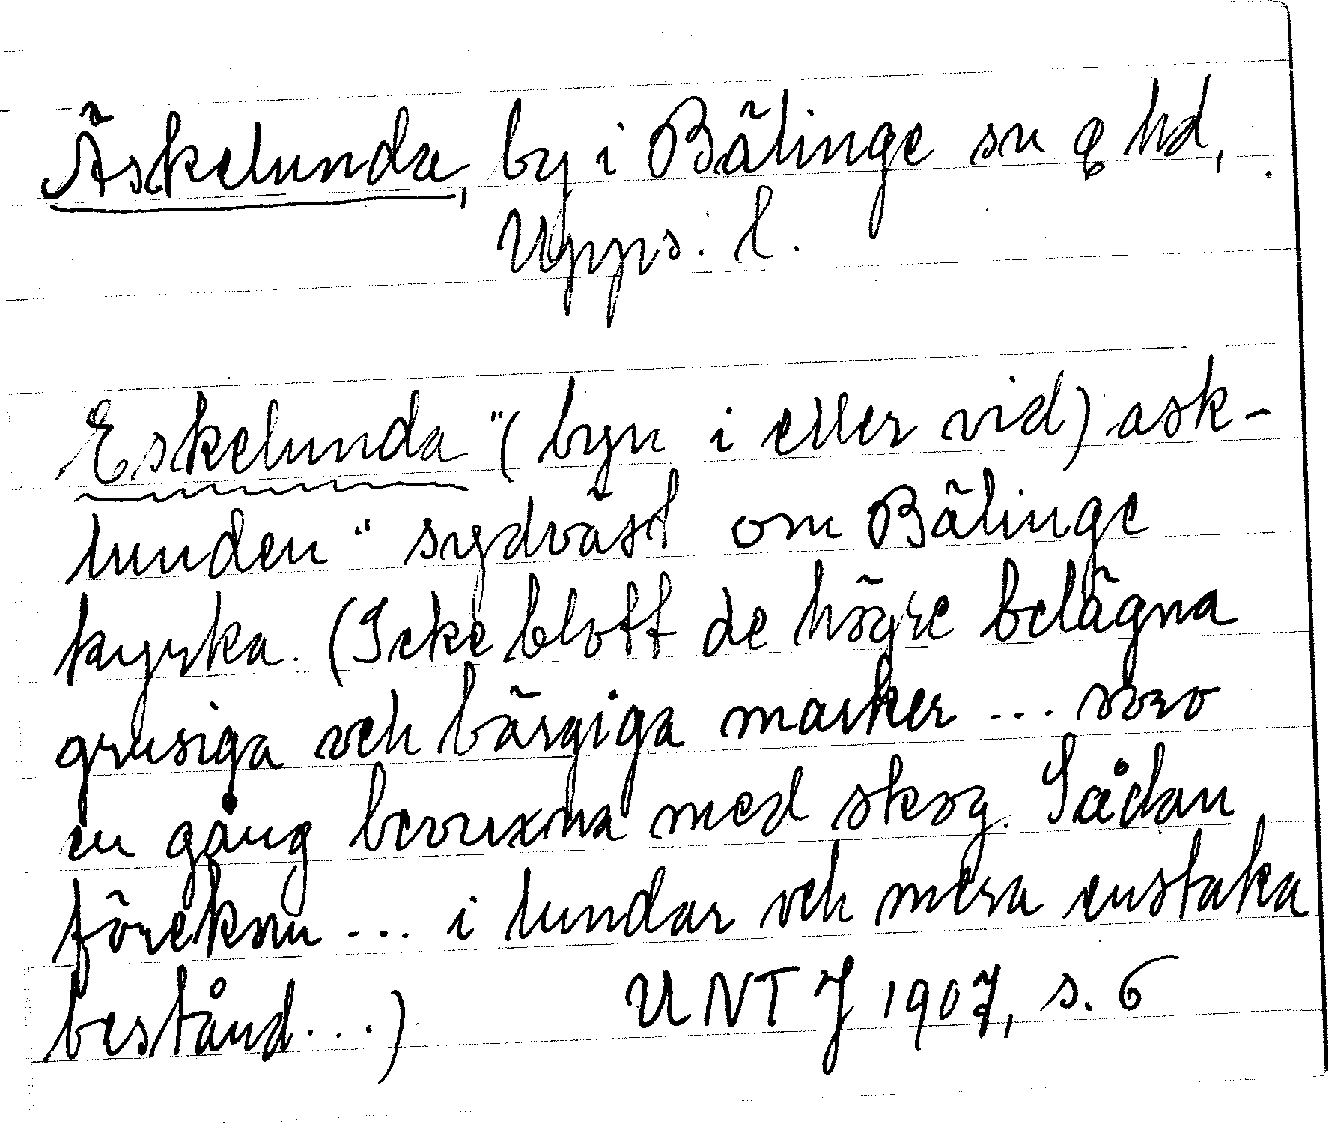 Äskelunda, by i Bälinge sn o hd,
Upps. l.
Eskelunda "(byn i eller vid) ask-
lunden" sydväst om Bälinge
kyrka. (Icke blott de högre belägna
grusiga och bärgiga marker ... voro
en gång bevuxna med skog. Sådan
förekom ... i lundar och mera enstaka
bestånd ...) UNT J 1907, s. 6